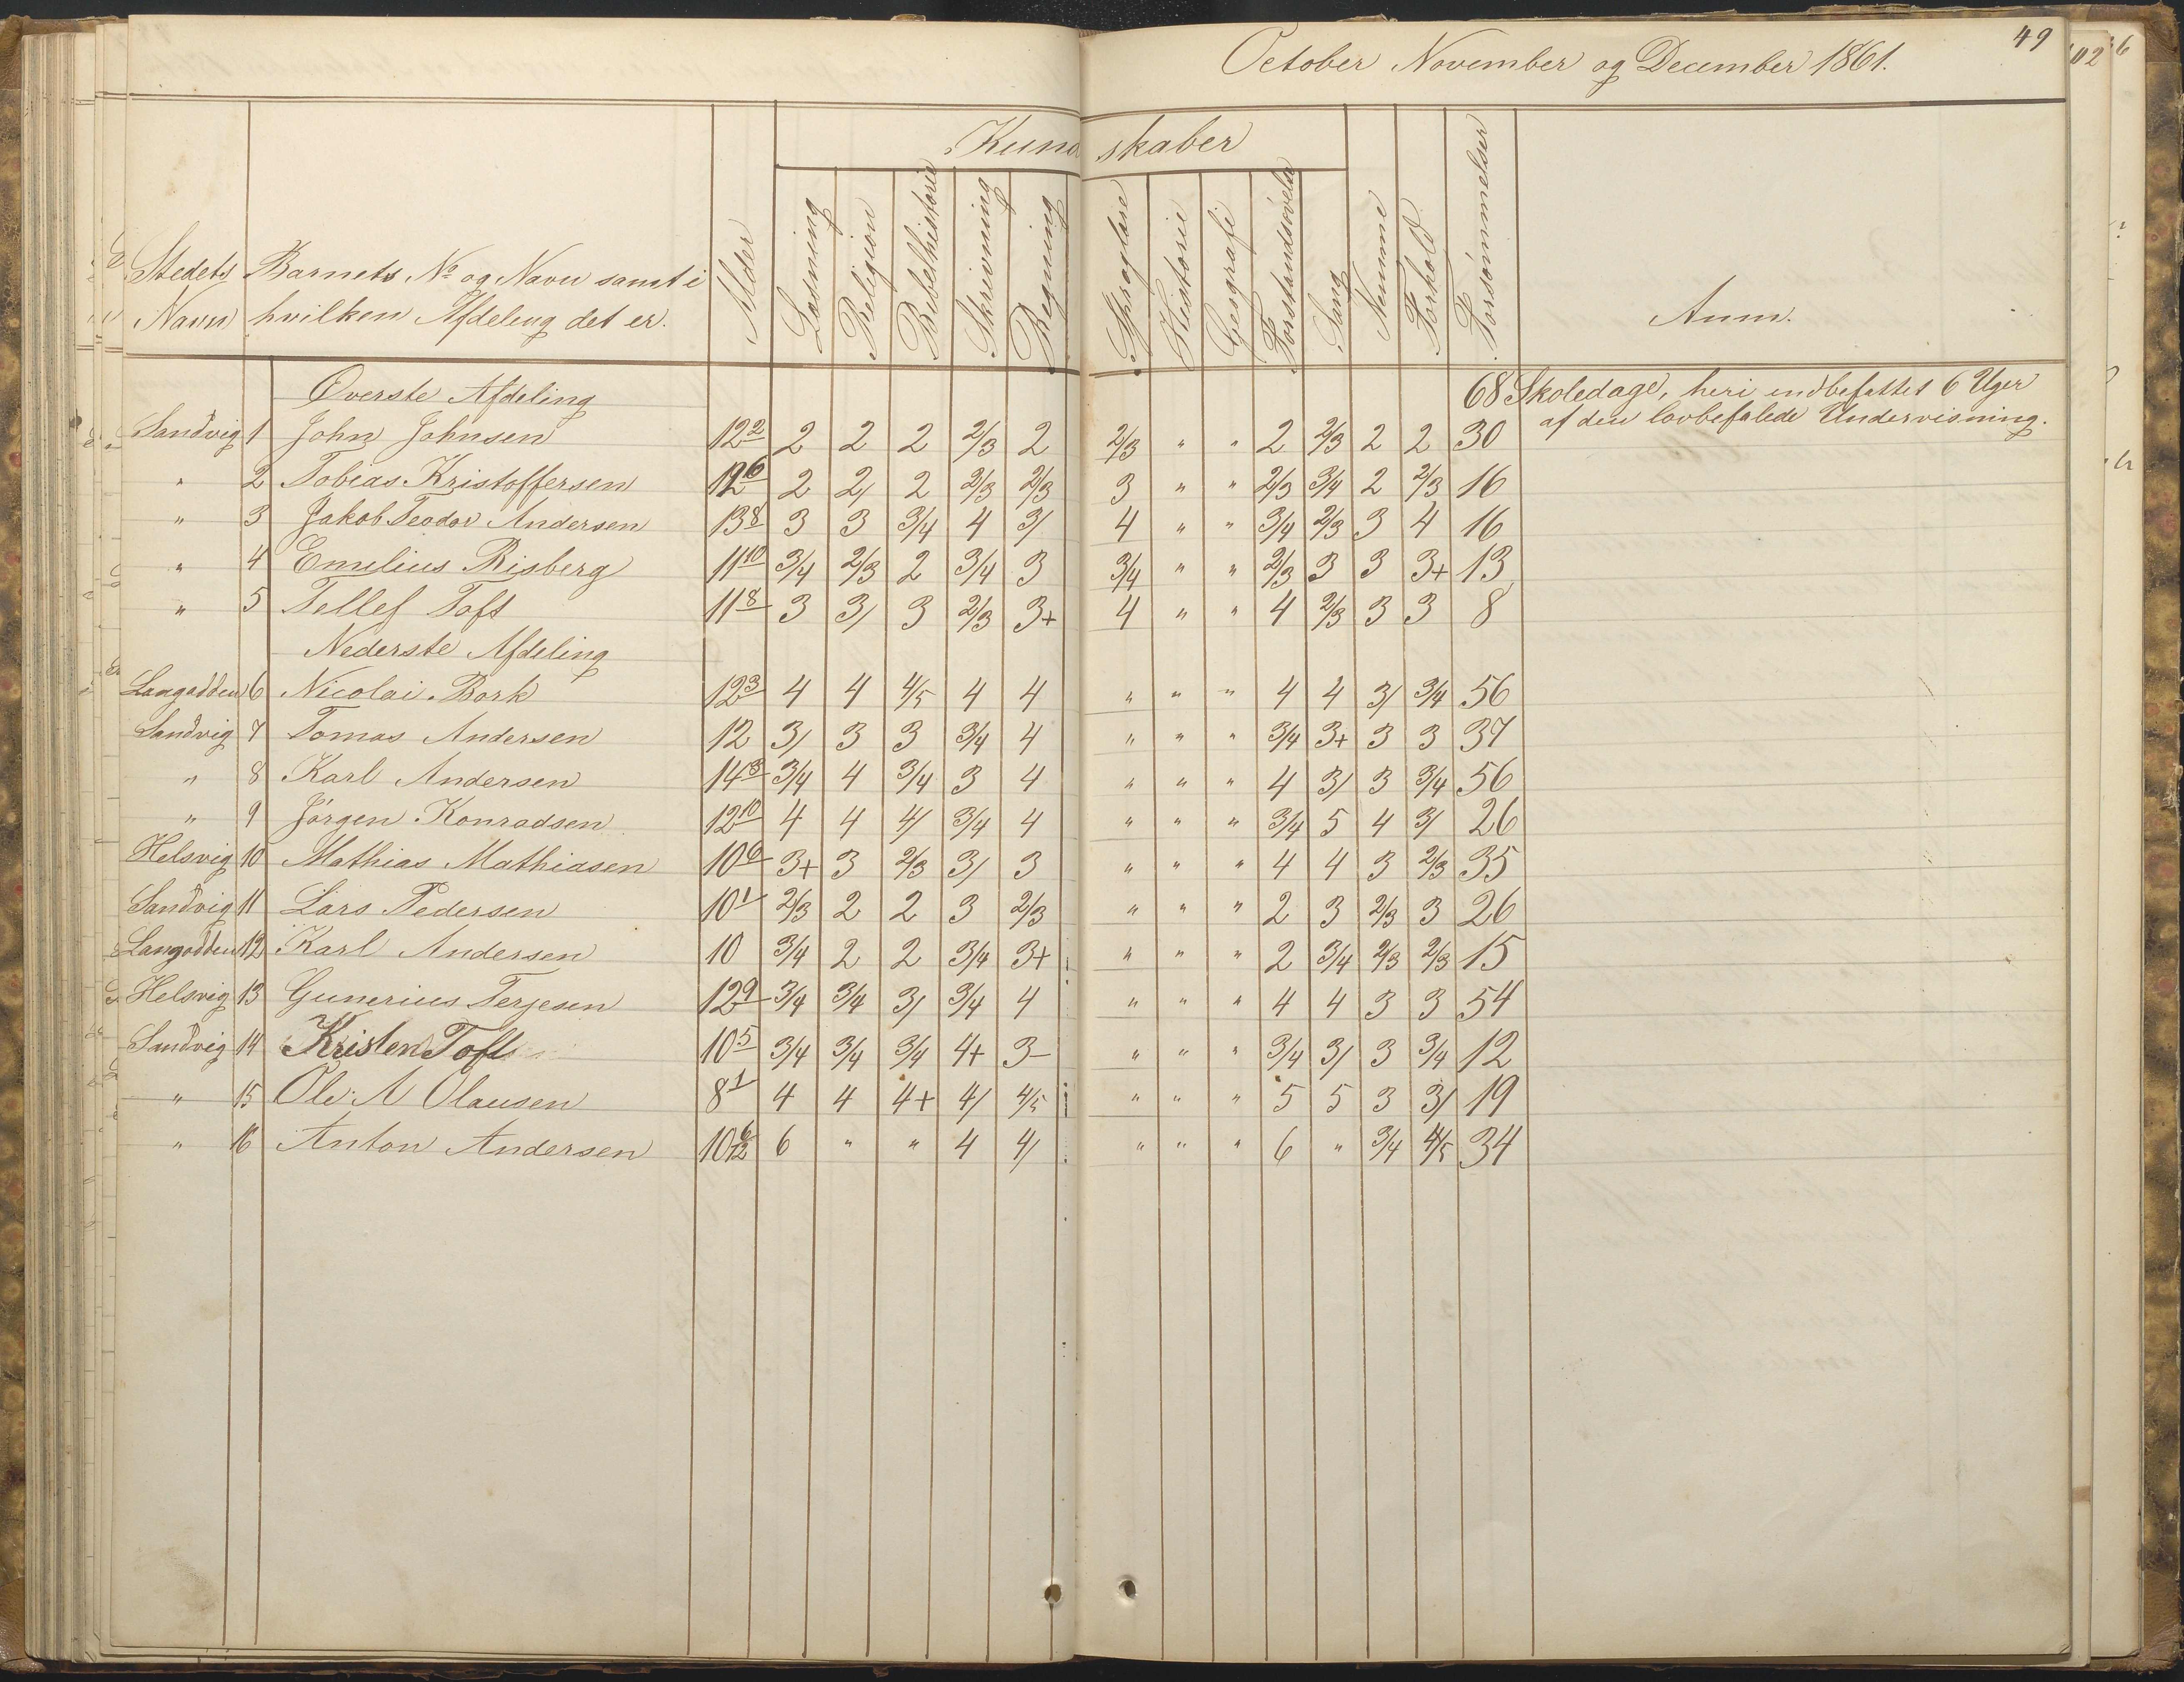 October November og December 1861.
49
Kundskaber
Stedets Navn | Barnets No og Navn samt i hvilken Afdeling det er. | Alder | Læsning | Religion | Bibelhistorie | Skrivning | Regning | Sproglære | Historie | Geografi | Forstandsøvelse | Sang | Nemme | Forhold | Forsømmelser | Anm.
Øverste Afdeling
68 Skoledage, heri indbefattet 6 Uger
af den lovbefalede Undervisning.
Sandvig 1 John Johnsen 12 2 2 2 2 2/3 2 2/3 " " 2 2/3 2 2 30
" 2 Tobias Kristoffersen 12 6 2 2/ 2 2/3 2/3 3 " " 2/3 3/4 2 2/3 16
" 3 Jakob Teodor Andersen 13 8 3 3 3/4 4 3/ 4 " " 3/4 2/3 3 4 16
" 4 Emilius Risberg 11 10 3/4 2/3 2 3/4 3 3/4 " " 2/3 3 3 3+ 13
" 5 Tellef Toft 11 8 3 3/ 3 2/3 3+ 4 " " 4 2/3 3 3 8
Nederste Afdeling
Langodden 6 Nicolai Bork 12 3 4 4 4/5 4 4 " " " 4 4 3/ 3/4 56
Sandvig 7 Tomas Andersen 12 3/ 3 3 3/4 4 " " " 3/4 3+ 3 3 37
" 8 Karl Andersen 14 3 3/4 4 3/4 3 4 " " " 4 3/ 3 3/4 56
" 9 Jörgen Konradsen 12 10 4 4 4/ 3/4 4 " " " 3/4 5 4 3/ 26
Helsvig 10 Mathias Mathiasen 10 6 3+ 3 2/3 3/ 3 " " " 4 4 3 2/3 35
Sandvig 11 Lars Pedersen 10 1 2/3 2 2 3 2/3 " " " 2 3 2/3 3 26
Langodden 12 Karl Andersen 10 3/4 2 2 3/4 3+ " " " 2 3/4 2/3 2/3 15
Helsvig 13 Gunerius Terjesen 12 9 3/4 3/4 3/ 3/4 4 " " " 4 4 3 3 54
Sandvig 14 Kristen Toft 10 5 3/4 3/4 3/4 4+ 3- " " " 3/4 3/ 3 3/4 12
" 15 Ole A Olausen 8 1 4 4 4+ 4/ 4/5 " " " 5 5 3 3/ 19
" 16 Anton Andersen 10 6/12 6 " " 4 4/ " " " 6 " 3/4 4/5 34